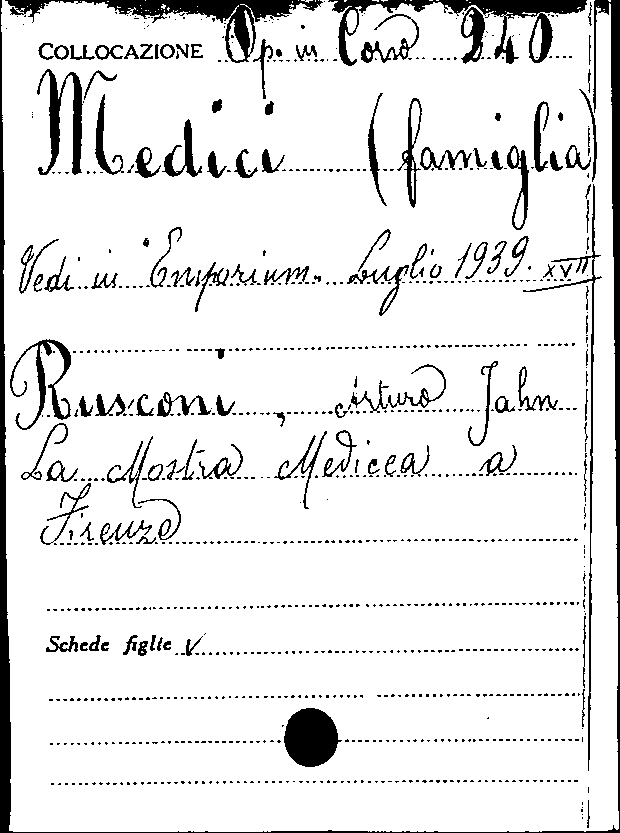 COLLOCAZIONE Op. in Corso 240
Medici (famiglia)
Vedi in "Emporium". Luglio 1939. XVII
Rusconi, Arturo Jahn
La Mostra Medicea a
Firenze
Schede figlie V